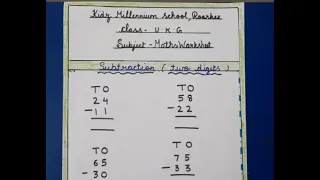 Kidz Millennium school, Roorkee
class- U K G
Subject - Maths Worksheet
Subtraction ( two digits )
T O
2 4
- 1 1
T O
5 8
- 2 2
T O
6 5
- 3 0
T O
7 5
- 3 3